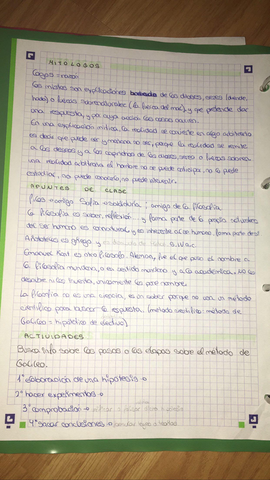 MITO LOGOS
Logos = razón
Los mitos son explicaciones basadas de los dioses, seres (divinidades) o fuerzas sobrenaturales (la fuerza del mar), y que pretende dar
una respuesta, y por qué pasan las cosas ocurren.
En una explicación mítica, la realidad se convierte en algo arbitrario
es decir que puede ser y mañana no ser, porque la realidad se somete
a los deseos y a los caprichos de los dioses, seres o fuerza
una realidad arbitraria el hombre no se puede anticipar, no la puede
estudiar, no puede conocerla, no puede
APUNTES DE CLASE
Filos = amigo Sofía = sabiduría, amigo de la filosofía
La filosofía es saber, reflexión y forma parte de la propia naturaleza
del ser humano es connatural y es inherente al ser humano, forma parte del
Aristóteles es griego y S. IV a.C
Emanuel Kant es otro filósofo, Alemán, fue el que puso el nombre a
la filosofía mundana, o su sentido mundano y a la académica. NO las
descubre ni las inventa, únicamente les pone nombre.
La filosofía no es una ciencia, es un saber porque no usa un método
científico para buscar la respuesta. (método científico método de
Galileo = hipotético deductivo)
ACTIVIDADES
Busca info sobre los pasos o las etapas sobre el método de
Galileo.
1º elaboración de una hipótesis
2º hacer experimentos
3º comprobación
4º sacar conclusiones